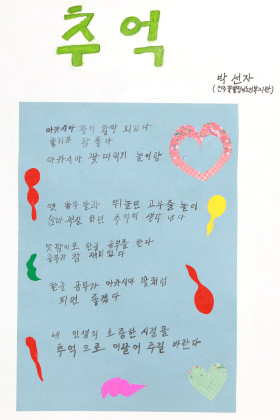 추억
박선자
아카시아 꽃이 활짝 피었다
향기가 참 좋다
아카시아 꽃 따먹기 놀이랑
옛 동무들과 뛰놀던 고무줄 놀이
하던 추억이 생각 난다
한글 공부를 한다
공부가 참 재미있다
한글 공부가 아카시아 꽃처럼
피면 좋겠다
내 인생의 소중한 시절을
추억으로 이끌어 주길 바란다